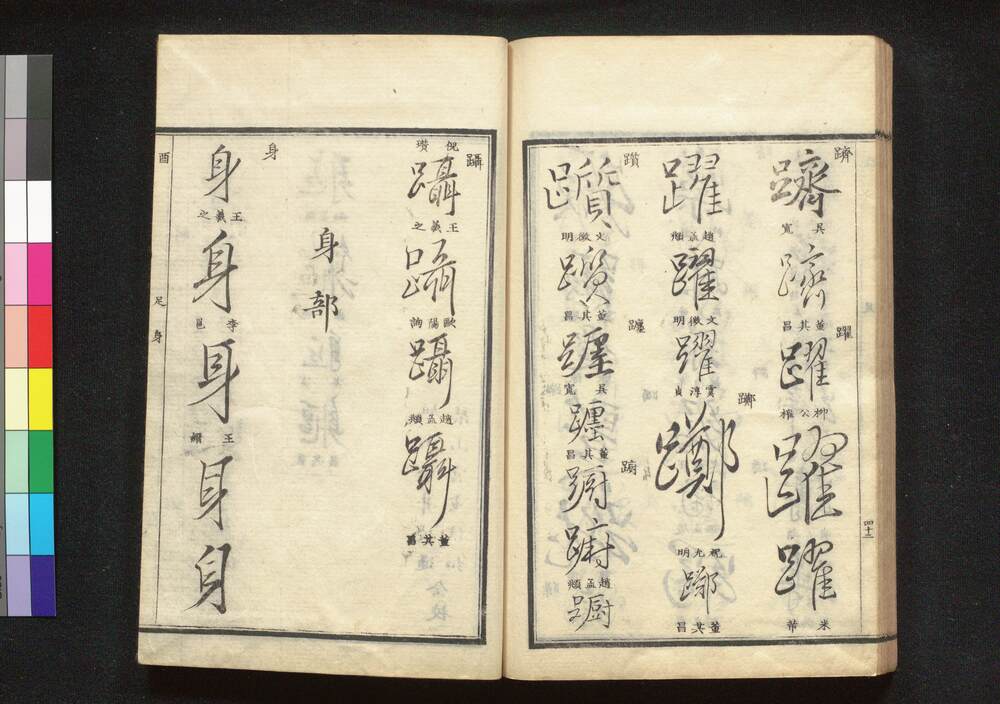 躋
躋
吳寬
躋
董其昌
躍
躍
柳公權
躍
躍
米芾
四十三
躍
趙孟頫
躍
文徵明
躍
賈淳貞
躑
躑
祝允明
躑
董其昌
躓
躓
文徵明
躓
董其昌
躔
躔
吳寬
躔
董其昌
躕
躕
躕
趙孟頫
躕
躡
倪瓚
躡
王羲之
躡
歐陽詢
躡
趙孟頫
躡
董其昌
身部
身
身
王羲之
身
李邕
身
王縉
身
身
酉
足身